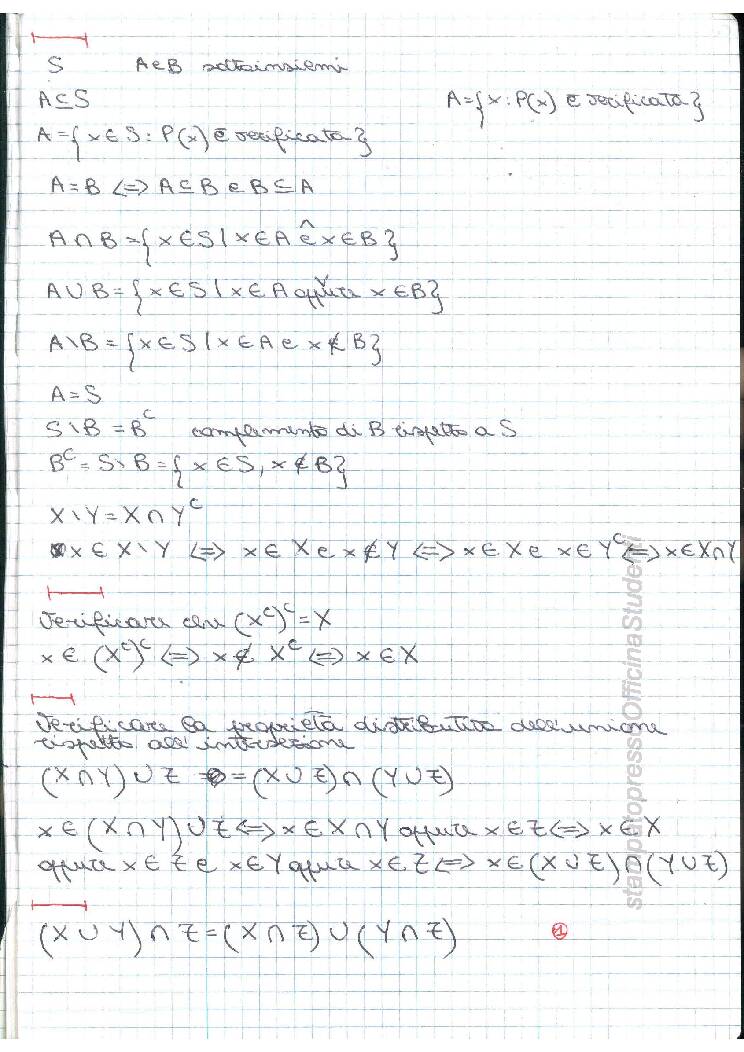 S A e B sottoinsiemi
A⊆S A={x : P(x) è verificata}
A={x∈S : P(x) è verificata}
A=B ⟺ A⊆B e B⊆A
A∩B={x∈S | x∈A ê x∈B}
A∪B={x∈S | x∈A oppure ∨ x∈B}
A∖B={x∈S | x∈A e x∉B}
A=S
S∖B=Bᶜ complemento di B rispetto a S
Bᶜ=S∖B={x∈S, x∉B}
X∖Y=X∩Yᶜ
x∈X∖Y ⟺ x∈X e x∉Y ⟺ x∈X e x∈Yᶜ ⟺ x∈X∩Y
Verificare che (Xᶜ)ᶜ=X
x∈(Xᶜ)ᶜ ⟺ x∉Xᶜ ⟺ x∈X
Verificare la proprietà distributiva dell'unione
rispetto all'intersezione
(X∩Y)∪Z =(X∪Z)∩(Y∪Z)
x∈(X∩Y)∪Z ⟺ x∈X∩Y oppure x∈Z ⟺ x∈X
oppure x∈Z e x∈Y oppure x∈Z ⟺ x∈(X∪Z)∩(Y∪Z)
(X∪Y)∩Z=(X∩Z)∪(Y∩Z) 1